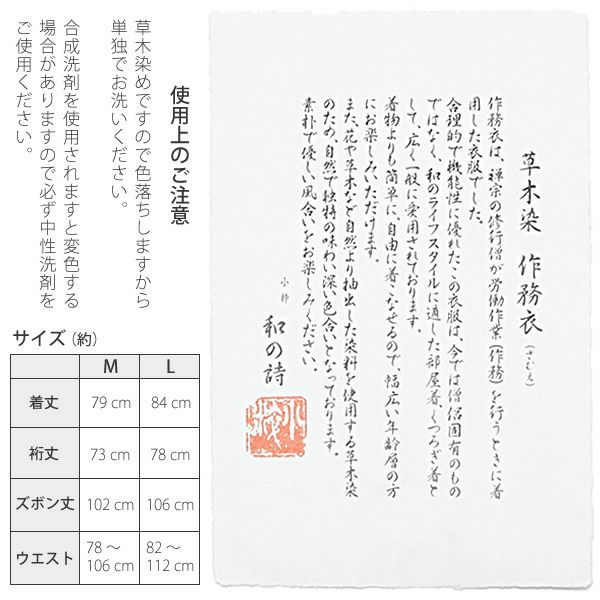 草木染 作務衣（さむえ）
作務衣は、禅宗の修行僧が労働作業（作務）を行うときに着
用した衣服でした。
合理的で機能性に優れたこの衣服は、今では僧侶固有のもの
ではなく、和のライフスタイルに適した部屋着、くつろぎ着と
して、広く一般に愛用されております。
着物よりも簡単に、自由に着こなせるので、幅広い年齢層の方
にお楽しみいただけます。
また、花や草木など自然より抽出した染料を使用する草木染
のため、自然で独特の味わい深い色合いとなっております。
素朴で優しい風合いをお楽しみください。
小粋
和の詩
使用上のご注意
草木染めですので色落ちしますから
単独でお洗いください。
合成洗剤を使用されますと変色する
場合がありますので必ず中性洗剤を
ご使用ください。
サイズ（約）
M L
着丈 79 cm 84 cm
裄丈 73 cm 78 cm
ズボン丈 102 cm 106 cm
ウエスト 78～ 82～
106 cm 112 cm